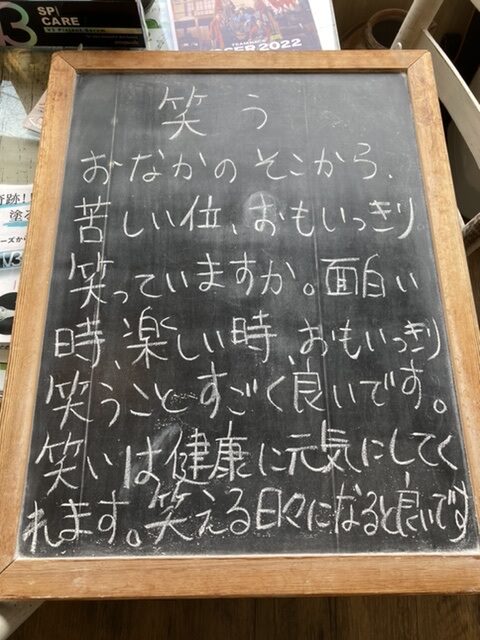 SPI
CARE
V3 Product Serum
2022
奇跡!!
塗る
ーズから
V3
笑う
おなかのそこから、
苦しい位、おもいっきり
笑っていますか。面白い
時、楽しい時、おもいっきり
笑うことすごく良いです。
笑いは健康に元気にしてく
れます。笑える日々になると良いです